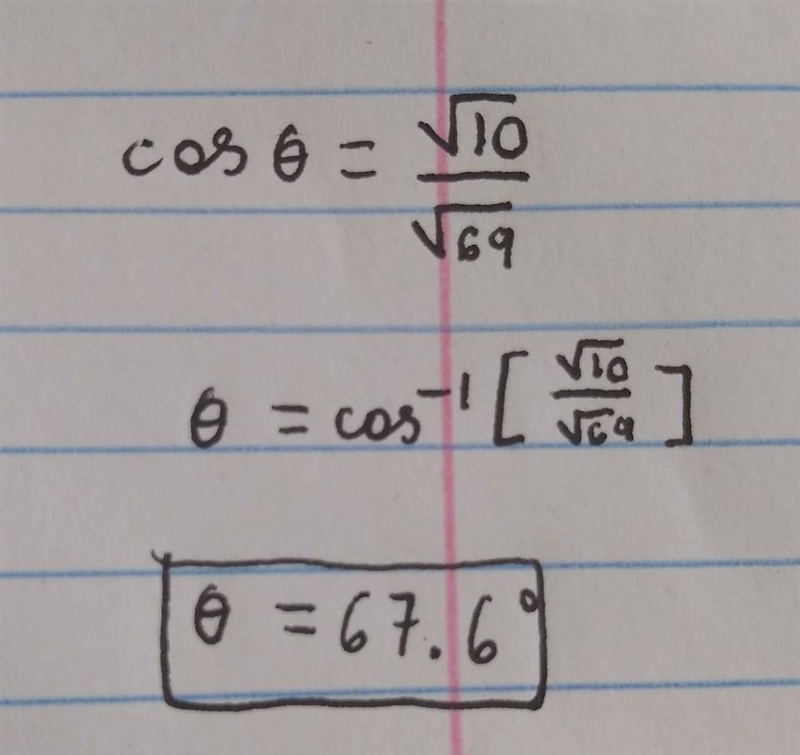 cos θ = √10/√69
θ = cos⁻¹[√10/√69]
θ = 67.6°